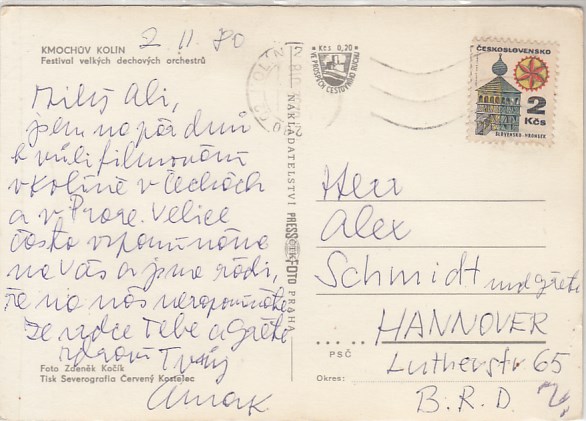 KMOCHŮV KOLÍN
Festival velkých dechových orchestrů
2 II 80
Milý Ali,
jsem na pár dnů
k vůli filmování
v Kolíně v Čechách
a v Praze. Velice
často vzpomínáme
na Vás a jsme rádi,
že na nás nezapomínáte
Ze srdce Tebe a Gréte
zdraví Tvůj
Foto Zdeněk Kočík
Tisk Severografia Červený Kostelec
NAKLADATELSTVÍ PRESSFOTO PRAHA
Kčs 0,20
VE PROSPĚCH CESTOVNÍHO RUCHU
ČESKOSLOVENSKO
2
Kčs
SLOVENSKO-HRONSEK
Herr
Alex
Schmidt und Gréte
HANNOVER
PSČ
Lutherstr 65
Okres:
B.R.D.